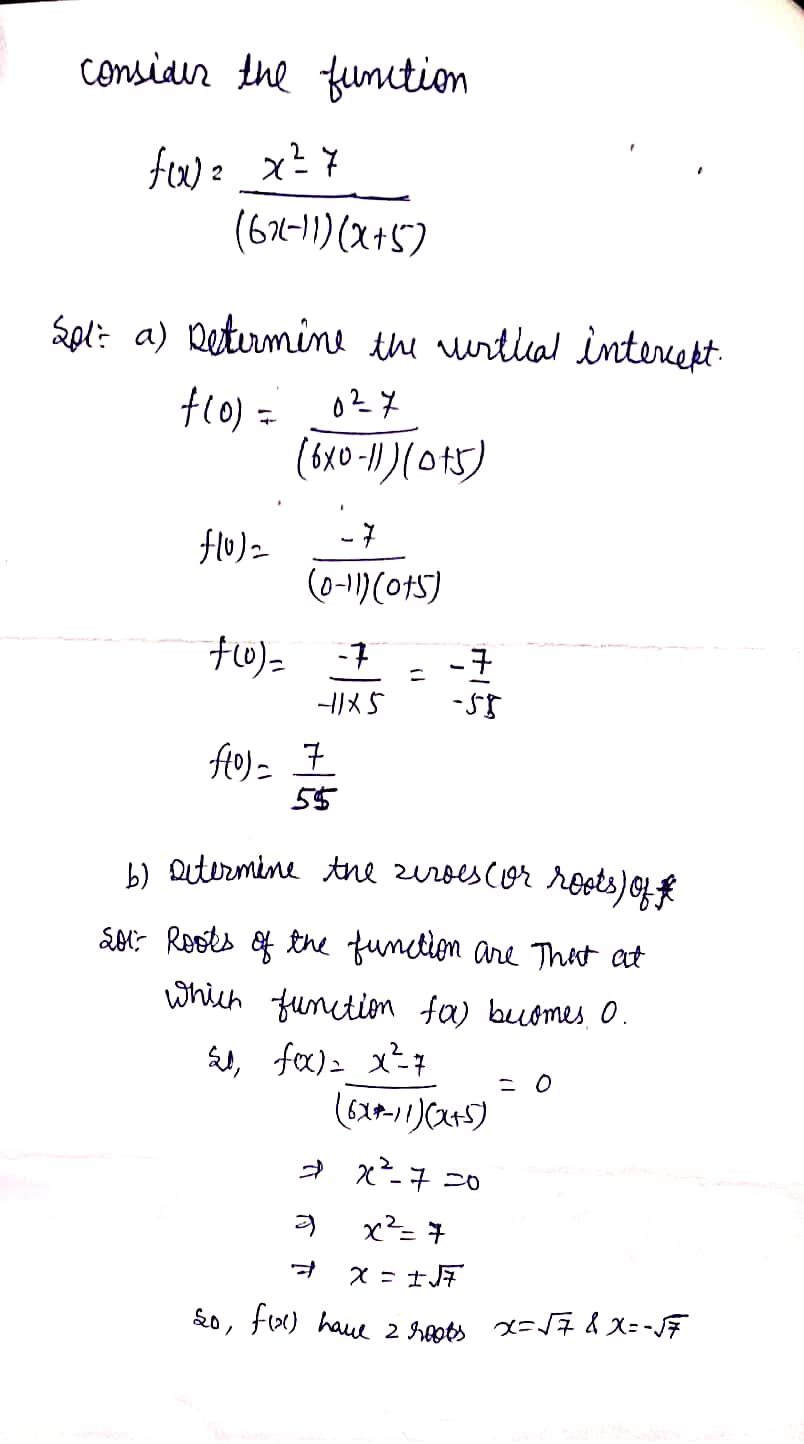 consider the function
f(x) = x² - 7 / (6x-11)(x+5)
Sol:- a) Determine the vertical intercept.
f(0) = 0² - 7 / (6x0-11)(0+5)
f(0) = -7 / (0-11)(0+5)
f(0) = -7 / -11x5 = -7 / -55
f(0) = 7 / 55
b) Determine the zeroes (or roots) of f
Sol:- Roots of the function are That at
which function f(x) becomes 0.
So, f(x) = x² - 7 / (6x-11)(x+5) = 0
⇒ x² - 7 = 0
⇒ x² = 7
⇒ x = ±√7
So, f(x) have 2 roots x=√7 & x=-√7